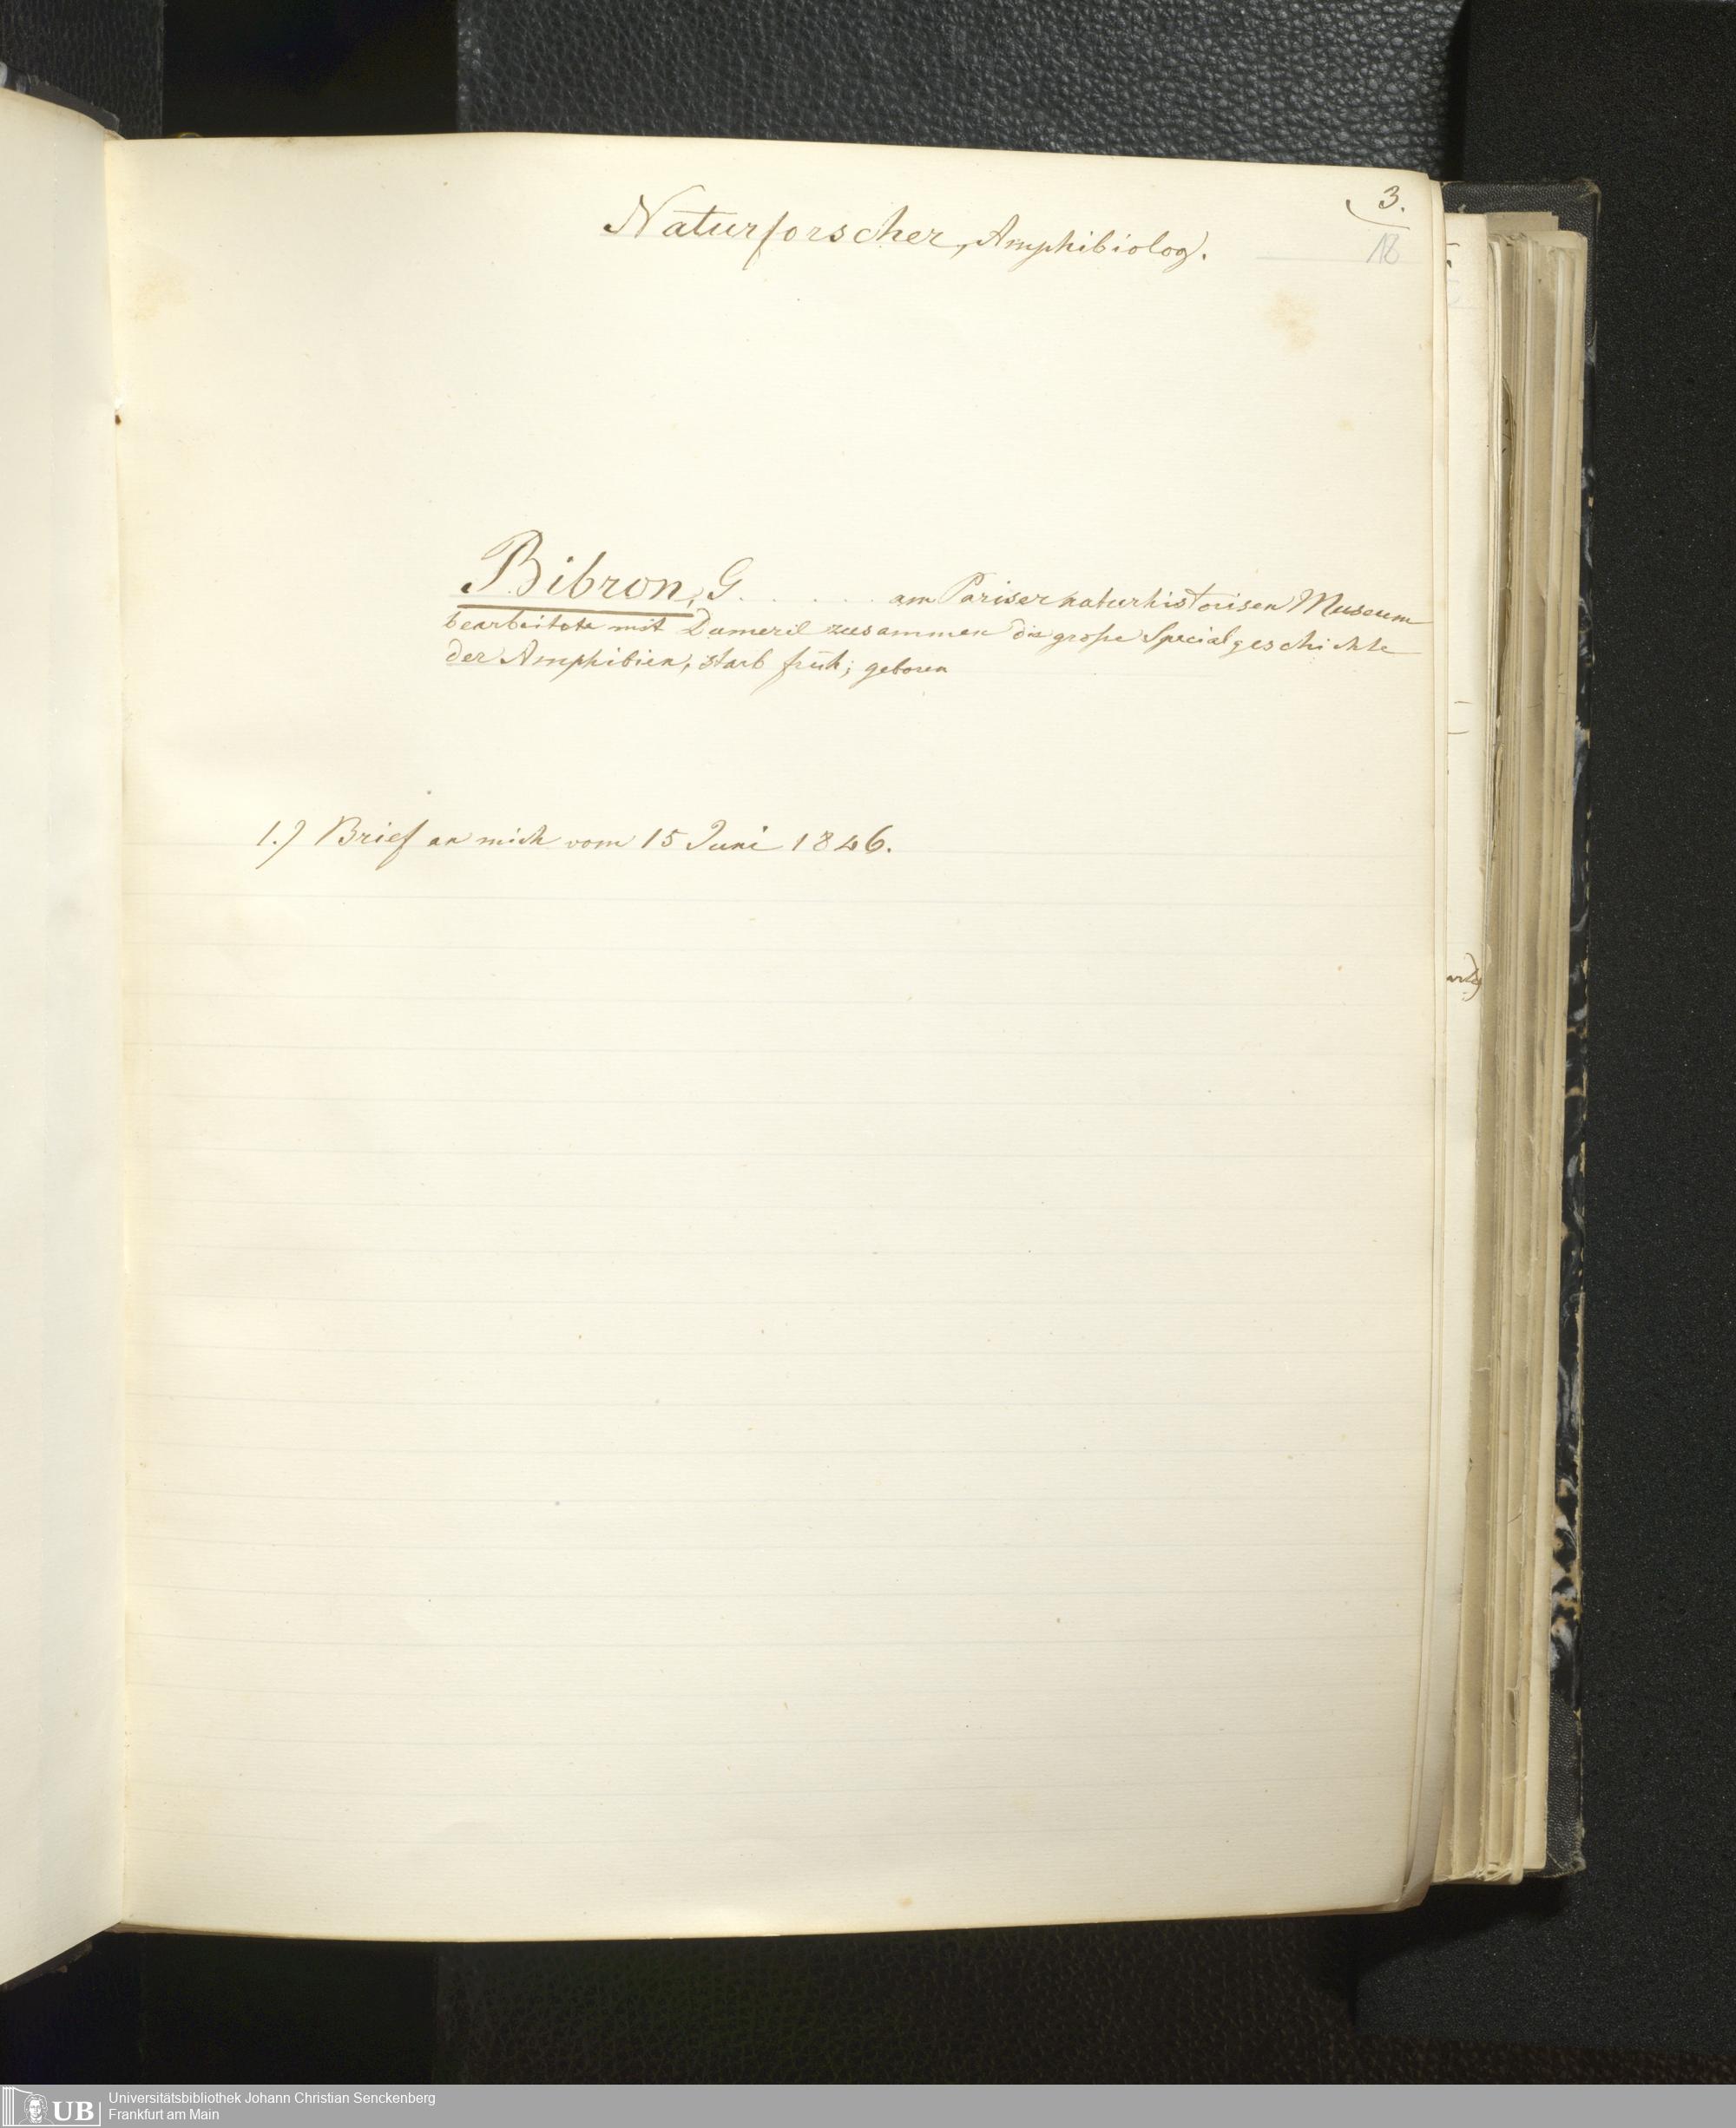 3.
18
Naturforscher, Amphibiolog.
Bibron, G. . . . . . am Pariser naturhistorisen Museum
bearbeitete mit Dumeril zusammen die große Specialgeschichte
der Amphibien, starb früh; geboren
1.) Brief an mich vom 15 Juni 1846.
UB
Universitätsbibliothek Johann Christian Senckenberg
Frankfurt am Main